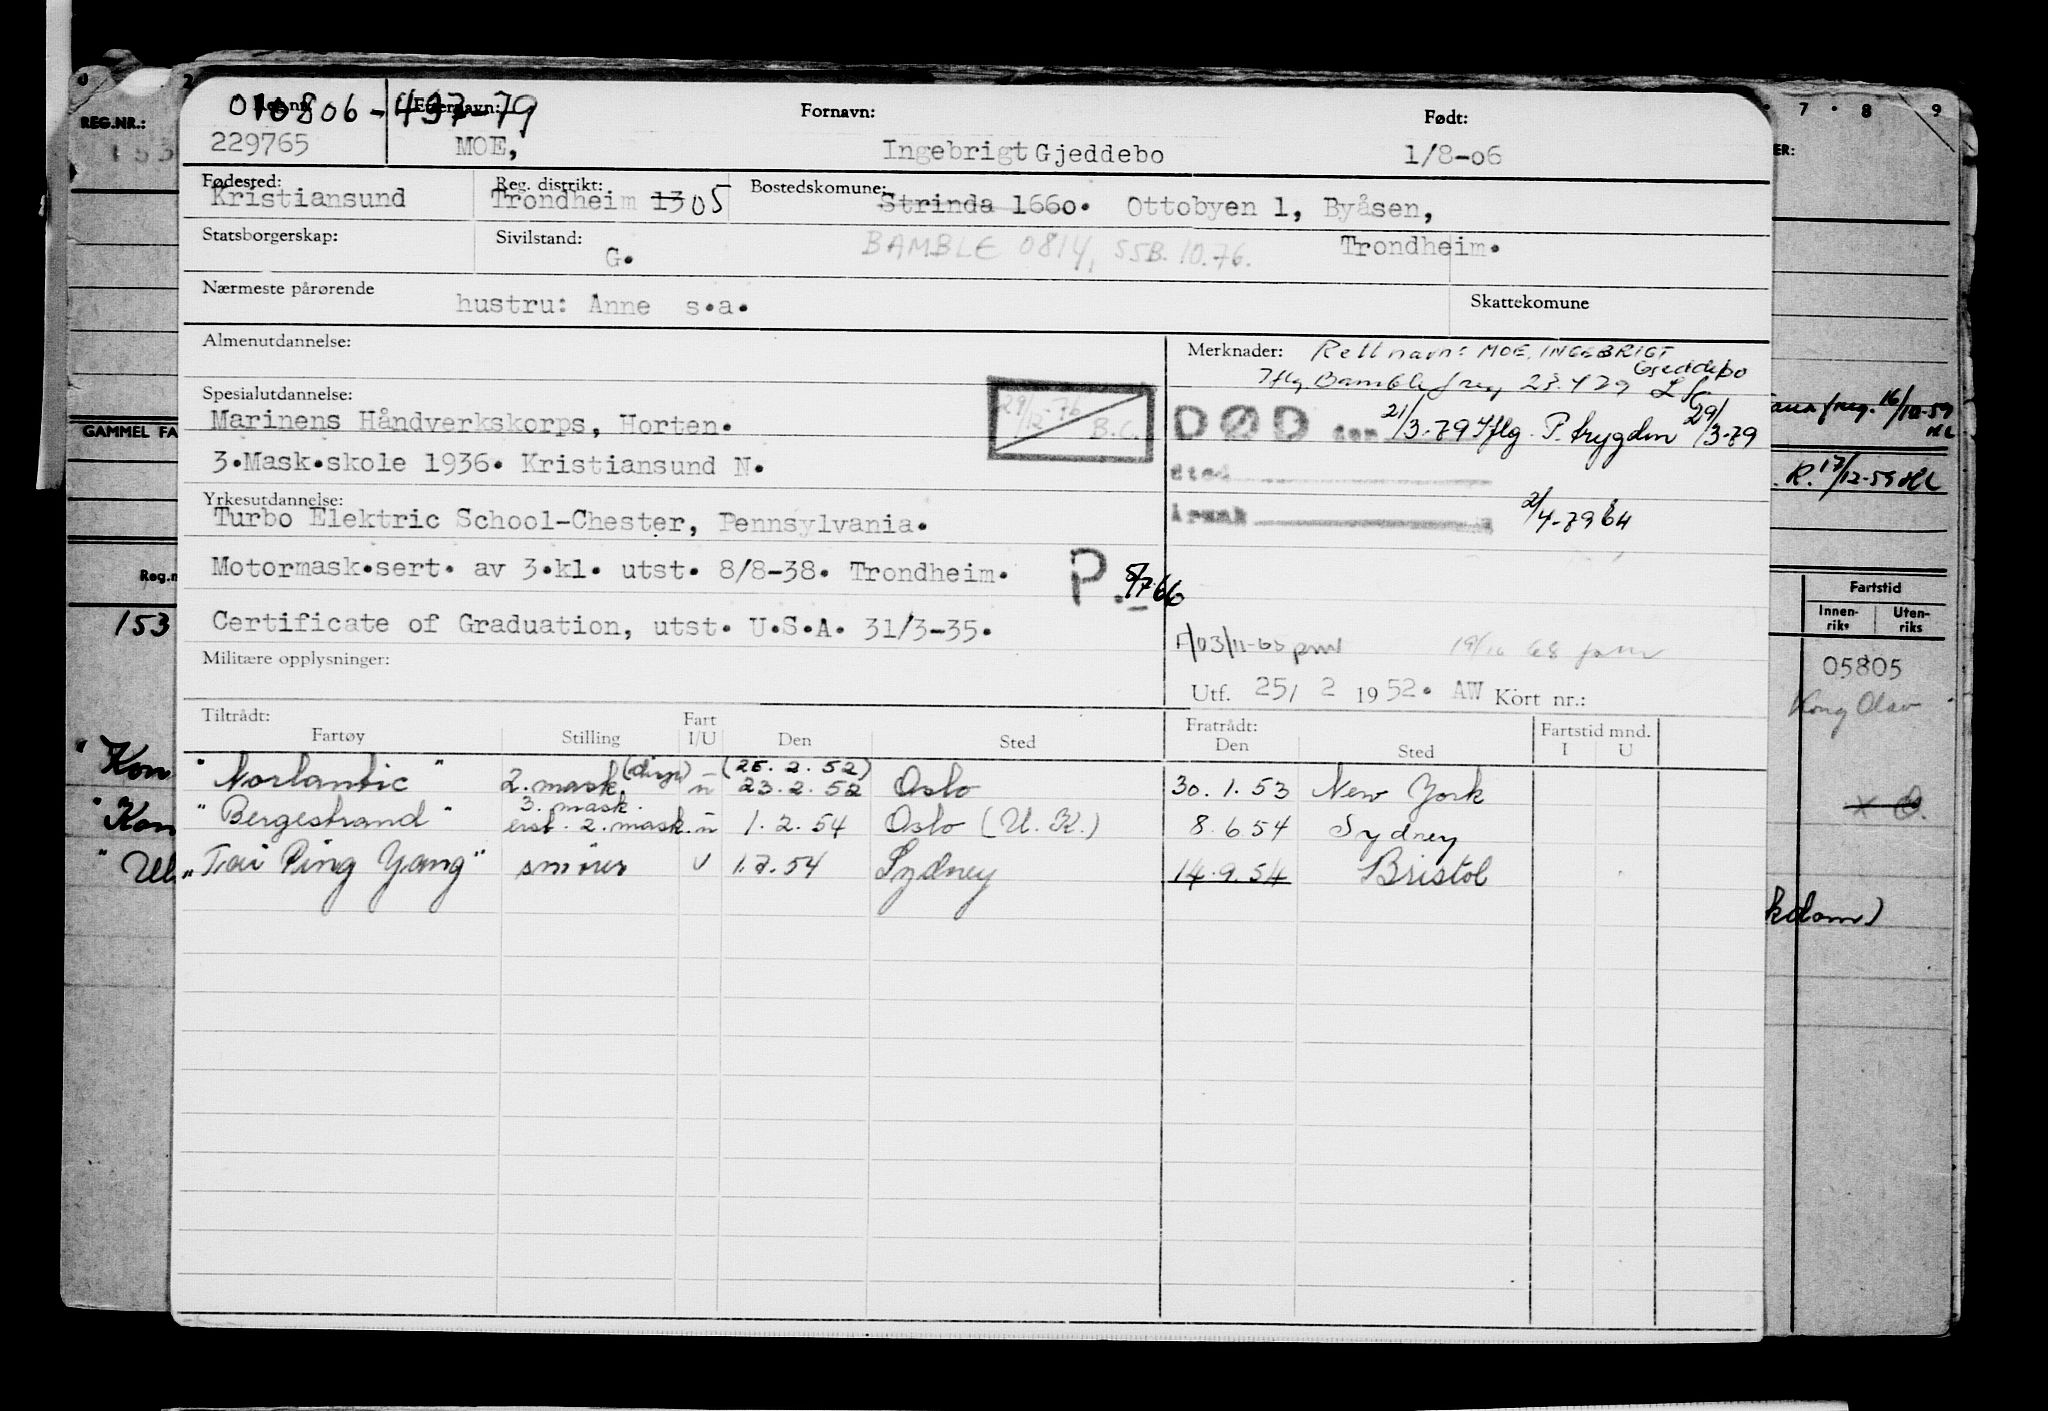 010806-49779
Reg.nr. Etternavn: Fornavn: Født:
229765 MOE, Ingebrigt Gjeddebo 1/8-06
Fødested: Reg. distrikt: Bostedskomune:
Kristiansund Trondheim 13 05 Strinda 1660. Ottobyen 1, Byåsen,
Statsborgerskap: Sivilstand: G. BAMBLE 0814, SSB. 10.76. Trondheim.
Nærmeste pårørende hustru: Anne s.a. Skattekomune
Almenutdannelse:
Merknader: Rett navn: MOE, INGEBRIGT
Gjeddebo
Iflg Bamble f.reg. 23.4 79
Spesialutdannelse: 29/12-76 B.C.
Marinens Håndverkskorps, Horten.
DØD den 21/3-79 iflg. P. trygden 29/3-79
3.Mask.skole 1936. Kristiansund N.
sted
Yrkesutdannelse:
Turbo Elektric School-Chester, Pennsylvania.
årsak 2/4-79
Motormask.sert. av 3.kl. utst. 8/8-38. Trondheim. P. 5/7.66
Certificate of Graduation, utst. U.S.A. 31/3-35.
Militære opplysninger:
Utf. 25/ 2 1952. AW Kort nr.:
Tiltrådt: Fratrådt:
Fartøy Stilling Fart I/U Den Sted Den Sted Fartstid mnd. I U
"Norlantic" 2. mask. (disp) u (25.2.52) 23.2.52 Oslo 30.1.53 New York
"Bergestrand" 3. mask. erst. 2. mask. u 1.2.54 Oslo (U.K.) 8.6.54 Sydney
"Tai Ping Yang" smører U 1.7.54 Sydney 14.9.54 Bristol
REG.NR.:
153
GAMMEL FA
Reg.n
153
"Kon
"Kon
7 8 9
16/10-59
R. 17/12-59
Fartstid
Innen-riks Uten-riks
05805
Kong Olav